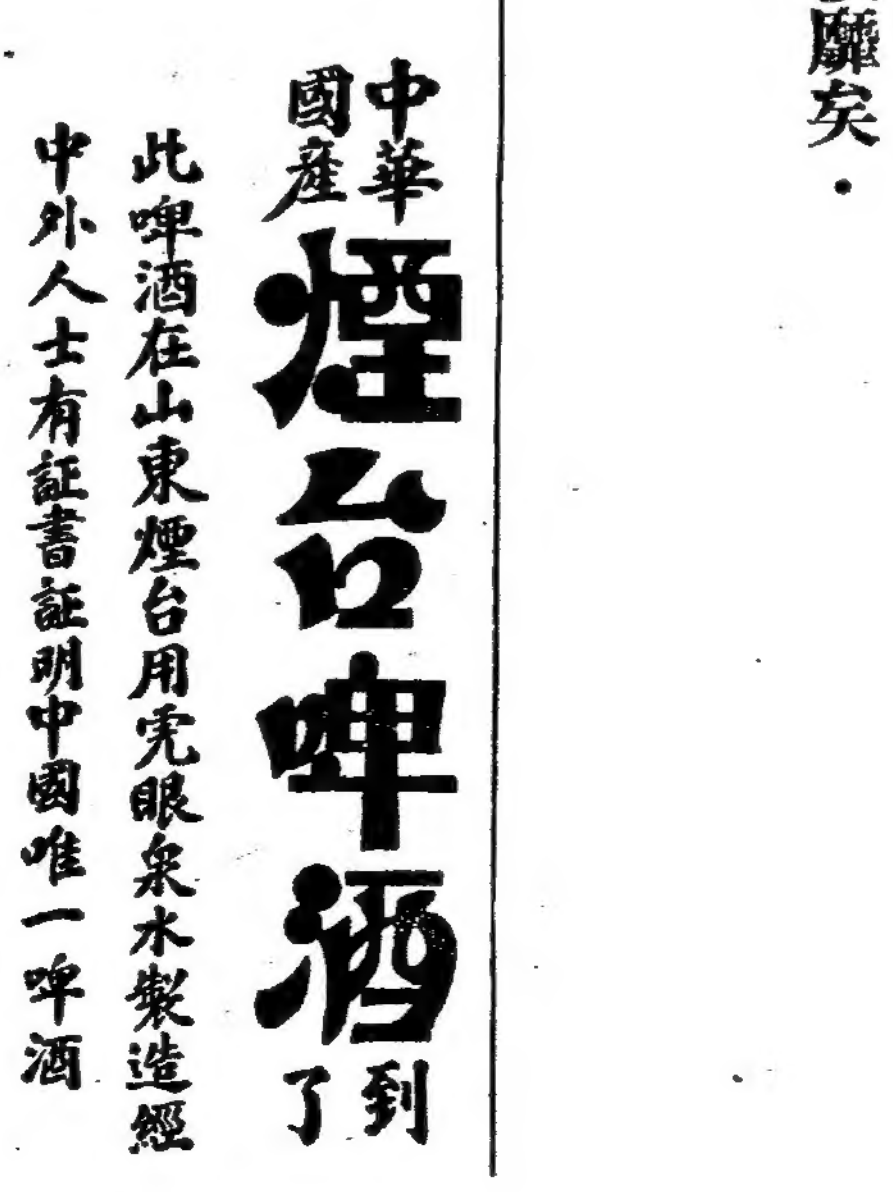 靡矣．
中華
國產
煙台啤酒
到
了
此啤酒在山東煙台用虎眼泉水製造經
中外人士有証書証明中國唯一啤酒